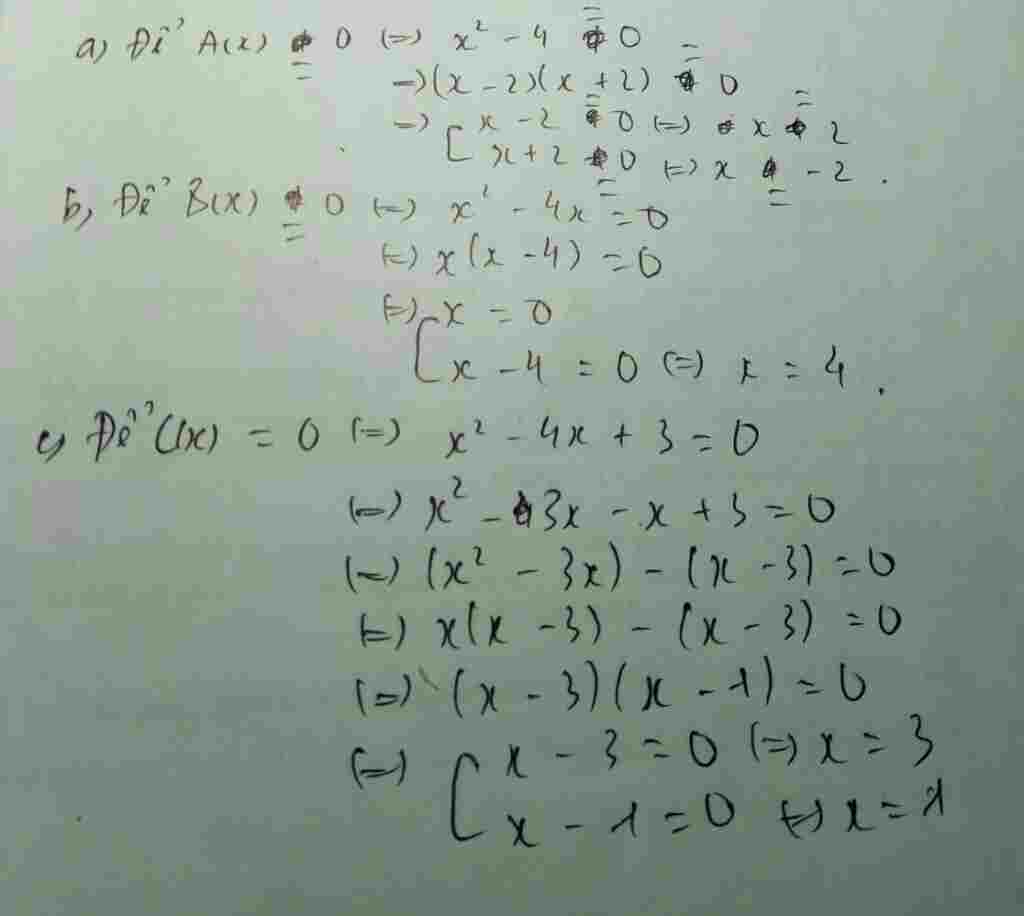 a) Để A(x) = 0 (=) x² - 4 = 0
-) (x - 2)(x + 2) = 0
-) [ x - 2 = 0 (=) x = 2
x + 2 = 0 (=) x = - 2 .
b, Để B(x) = 0 (=) x² - 4x = 0
(=) x(x - 4) = 0
(=) [ x = 0
x - 4 = 0 (=) x = 4 .
c, Để C(x) = 0 (=) x² - 4x + 3 = 0
(=) x² - 3x - x + 3 = 0
(=) (x² - 3x) - (x - 3) = 0
(=) x(x - 3) - (x - 3) = 0
(=) (x - 3)(x - 1) = 0
(=) [ x - 3 = 0 (=) x = 3
x - 1 = 0 (=) x = 1